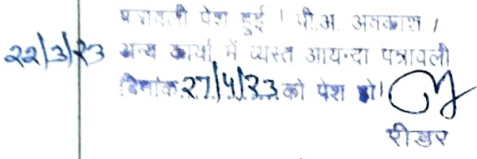 पत्रावली पेश हुई । पी.अ. अवकाश ।
22/3/23 अन्य कार्यो में व्यस्त आयन्दा पत्रावली
दिनांक 27/4/23 को पेश हो।
रीडर